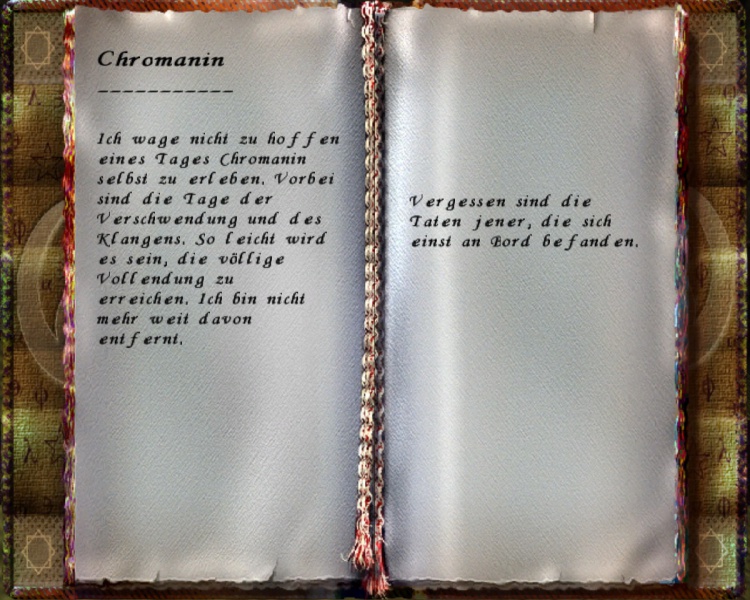 Chromanin
-----------
Ich wage nicht zu hoffen
eines Tages Chromanin
selbst zu erleben. Vorbei
sind die Tage der
Verschwendung und des
Klangens. So leicht wird
es sein, die völlige
Vollendung zu
erreichen. Ich bin nicht
mehr weit davon
entfernt.
Vergessen sind die
Taten jener, die sich
einst an Bord befanden.